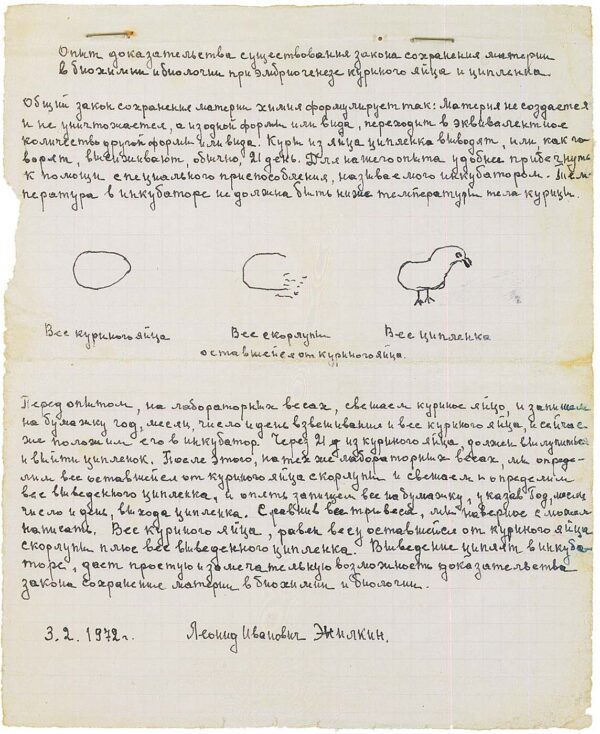 Опыт доказательства существования закона сохранения материи
в биохимии и биологии при эмбриогенезе куриного яйца и ципленка.
Общий закон сохранение материи химия формулирует так: Материя не создается
и не уничтожается, а из одной формы или вида, переходит в эквивалентное
количество другой формы или вида. Куры из яйца ципленка выводят, или, как го-
ворят, высиживают, обычно, 21 день. Для нашего опыта удобнее прибегнуть
к помощи специального приспособления, называемого инкубатором. Тем-
пература в инкубаторе не должна быть ниже температуры тела курицы.
Вес куриного яйца Вес скорлупы Вес ципленка
оставшейся от куриного яйца.
Перед опытом, на лабораторных весах, свешаем куриное яйцо, и запишем
на бумажку год, месяц, число и день взвешивания и вес куриного яйца, и сейчас
же положим его в инкубатор. Через 21 д из куриного яйца, должен вылупиться
и выйти ципленок. После этого, на тех же лабораторных весах, мы опреде-
лим вес оставшейся от куриного яйца скорлупы и свешаем и определим
вес выведенного ципленка, и опять запишем все на бумажку, указав год, месяц
число и день, выхода ципленка. Сравнив все три веса, мы наверное сможем
написать. Вес куриного яйца, равен весу оставшейся от куриного яйца
скорлупы плюс вес выведенного ципленка. Выведение циплят в инкуба-
торе, даст простую и замечательную возможность доказательства
закона сохранение материи в биохимии и биологии.
3.2.1972г. Леонид Иванович Жилкин.